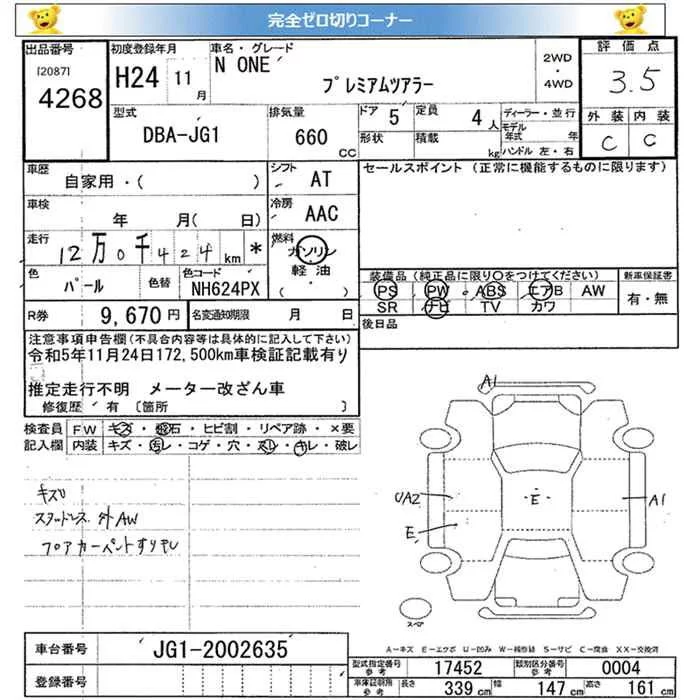 完全ゼロ切りコーナー
出品番号
[2087]
4268
初度登録年月
H24 11 月
車名・グレード
N ONE
プレミアムツアラー
2WD
・
4WD
評価点
3.5
外装 内装
C C
型式
DBA-JG1
排気量
660 CC
ドア 5
形状
定員 4 人
積載 kg
ディーラー・並行
モデル年式 年
ハンドル 左・右
車歴
自家用・( )
シフト AT
車検 年 月( 日)
冷房 AAC
走行 12万0千424 km *
燃料 ガソリン
軽油
( )
色 パール
色替
色コード NH624PX
R券 9,670 円
名変通知期限 月 日
セールスポイント (正常に機能するものに限ります)
装備品(純正品に限り○をつけてください)
新車保証書
PS PW ABS エアB AW
SR ナビ TV カワ
有・無
後日品
注意事項申告欄(不具合内容等は具体的に記入して下さい)
令和5年11月24日172,500km車検証記載有り
推定走行不明 メーター改ざん車
修復歴 有 〔箇所 〕
検査員 FW キズ・飛石・ヒビ割・リペア跡・×要
記入欄 内装 キズ・汚レ・コゲ・穴・スレ・キレ・破レ
キズ
スタッドレス 外AW
フロアカーペントすりキレ
A1
UA2
E
E
A1
スペア
A−キズ E−エクボ U−凹み W−補修跡 S−サビ C−腐食 XX−交換済
車台番号 JG1-2002635
登録番号
型式指定番号 参考 17452
類別区分番号 参考 0004
車体証明用 参考 長さ 339 cm 幅 147 cm 高さ 161 cm